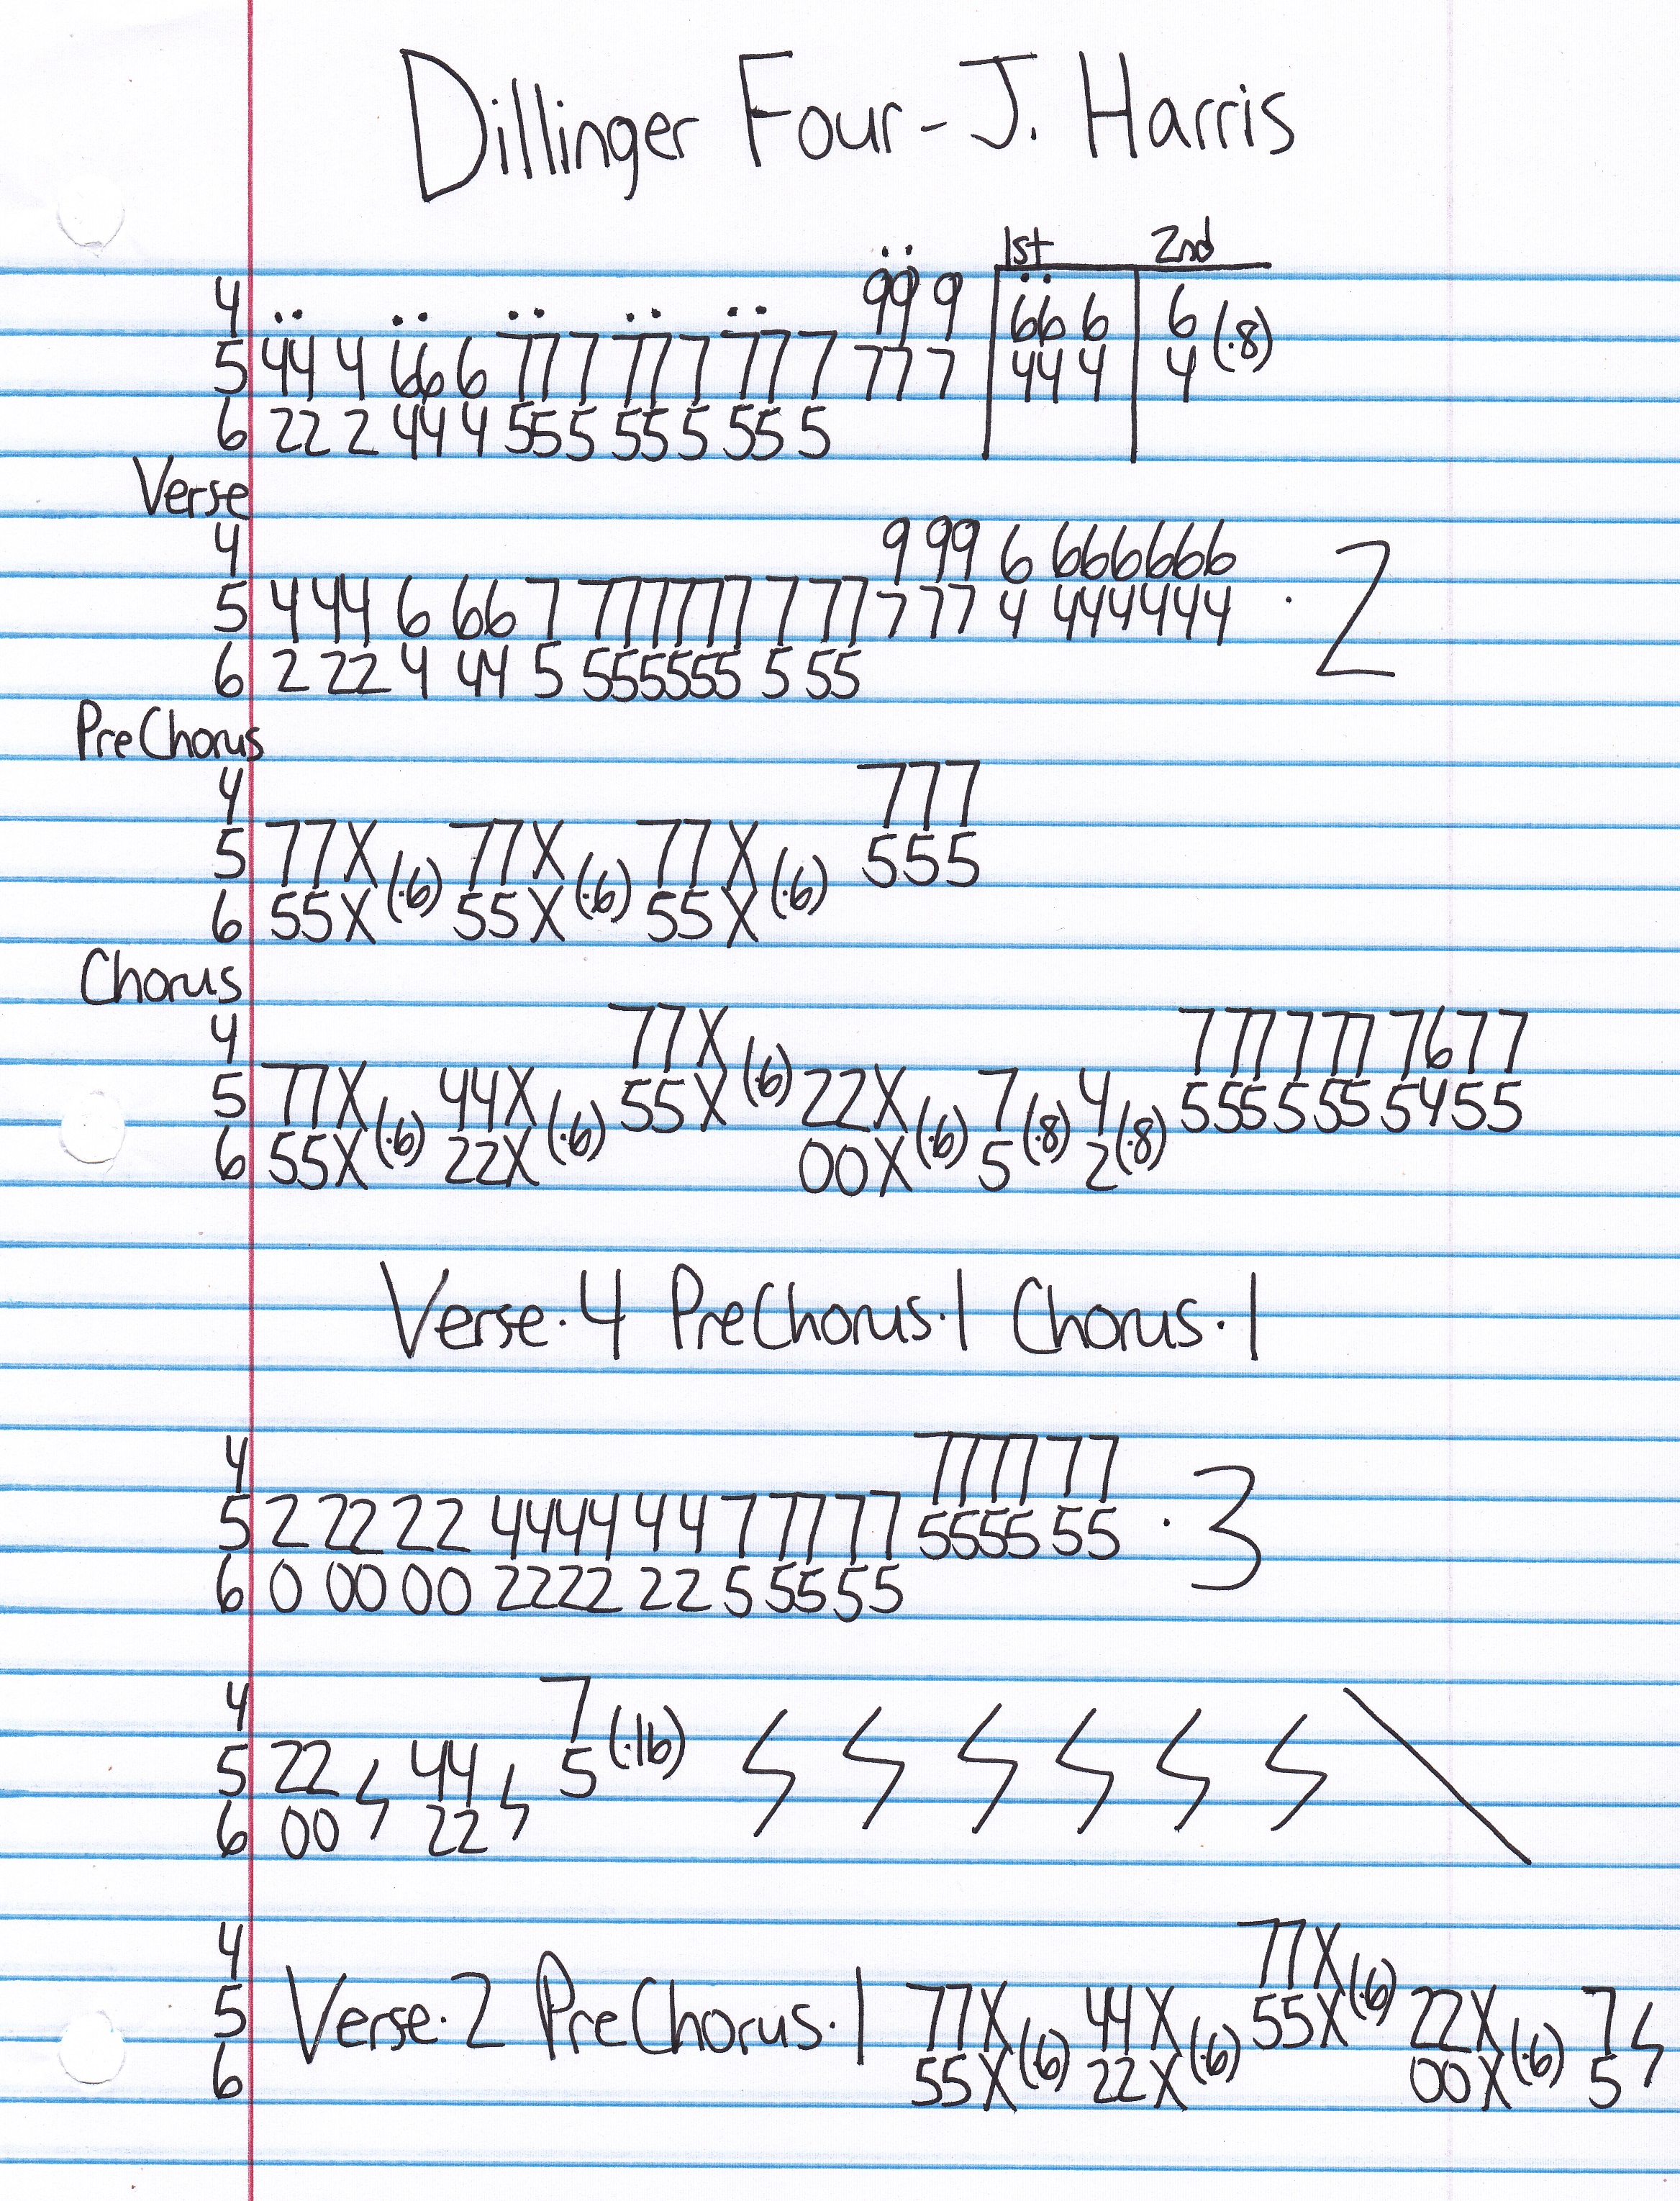 Dillinger Four - J. Harris
1st 2nd
4 99 9 66 6 6
5 44 4 66 6 77 7 77 7 77 7 77 7 44 4 4 (·8)
6 22 2 44 4 55 5 55 5 55 5
Verse
4 9 99 6 666666
5 4 44 6 66 7 777777 7 77 7 77 4 444444 · 2
6 2 22 4 44 5 555555 5 55
PreChorus
4 777
5 77X 77X 77X 555
6 55X (·6) 55X (·6) 55X (·6)
Chorus
4 77X 777 7 77 7677
5 77X 44X 55X (·6) 22X 7 4 555 5 55 5455
6 55X (·6) 22X (·6) 00X (·6) 5 (·8) 2 (·8)
Verse·4 PreChorus·1 Chorus·1
4 7777 77
5 2 22 22 4444 44 7 77 77 5555 55 · 3
6 0 00 00 2222 22 5 55 55
4 7
5 22 44 5 (·16)
6 00 22
4 77X
5 Verse·2 PreChorus·1 77X 44X 55X (·6) 22X 7
6 55X (·6) 22X (·6) 00X (·6) 5